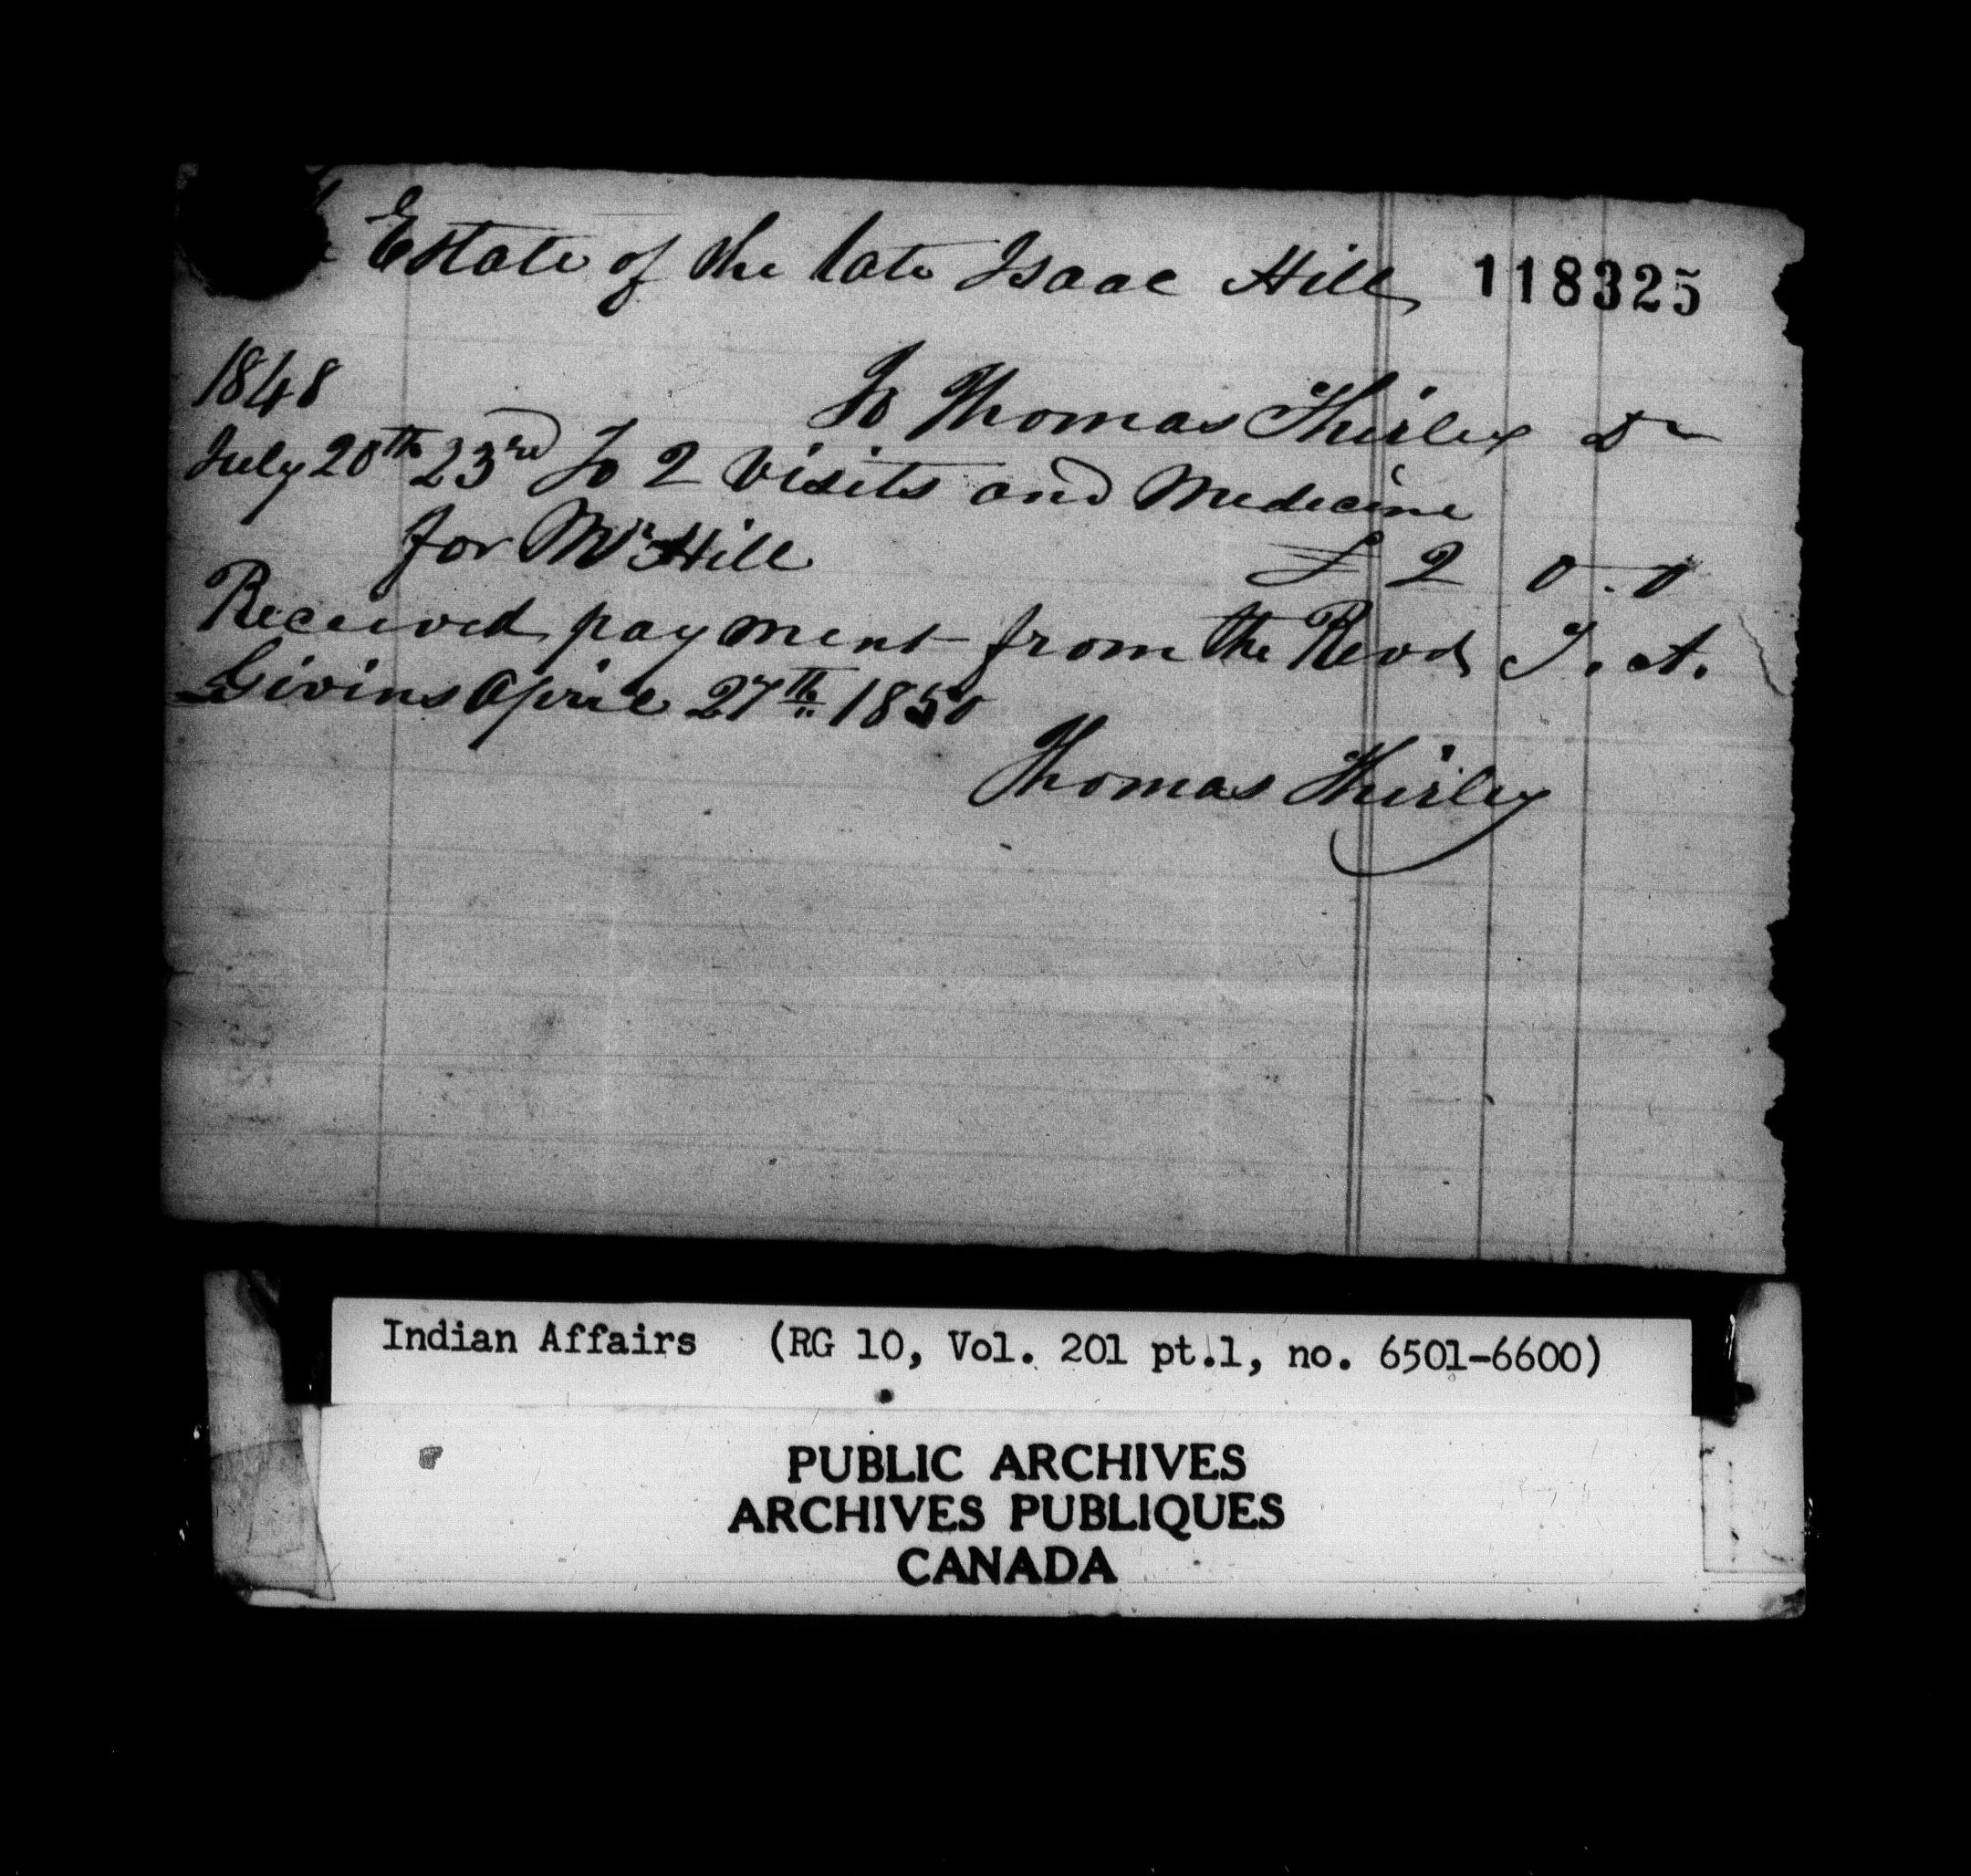 Estate of the late Isaac Hill 118325
1848
To Thomas Shirley Dr
July 20th 23rd To 2 Visits and Medecine
for Mrs Hill £ 2 0 . 0
Received payment from the Revd S. A.
Givins April 27th 1850
Thomas Shirley
Indian Affairs (RG 10, Vol. 201 pt.1, no. 6501-6600)
PUBLIC ARCHIVES
ARCHIVES PUBLIQUES
CANADA